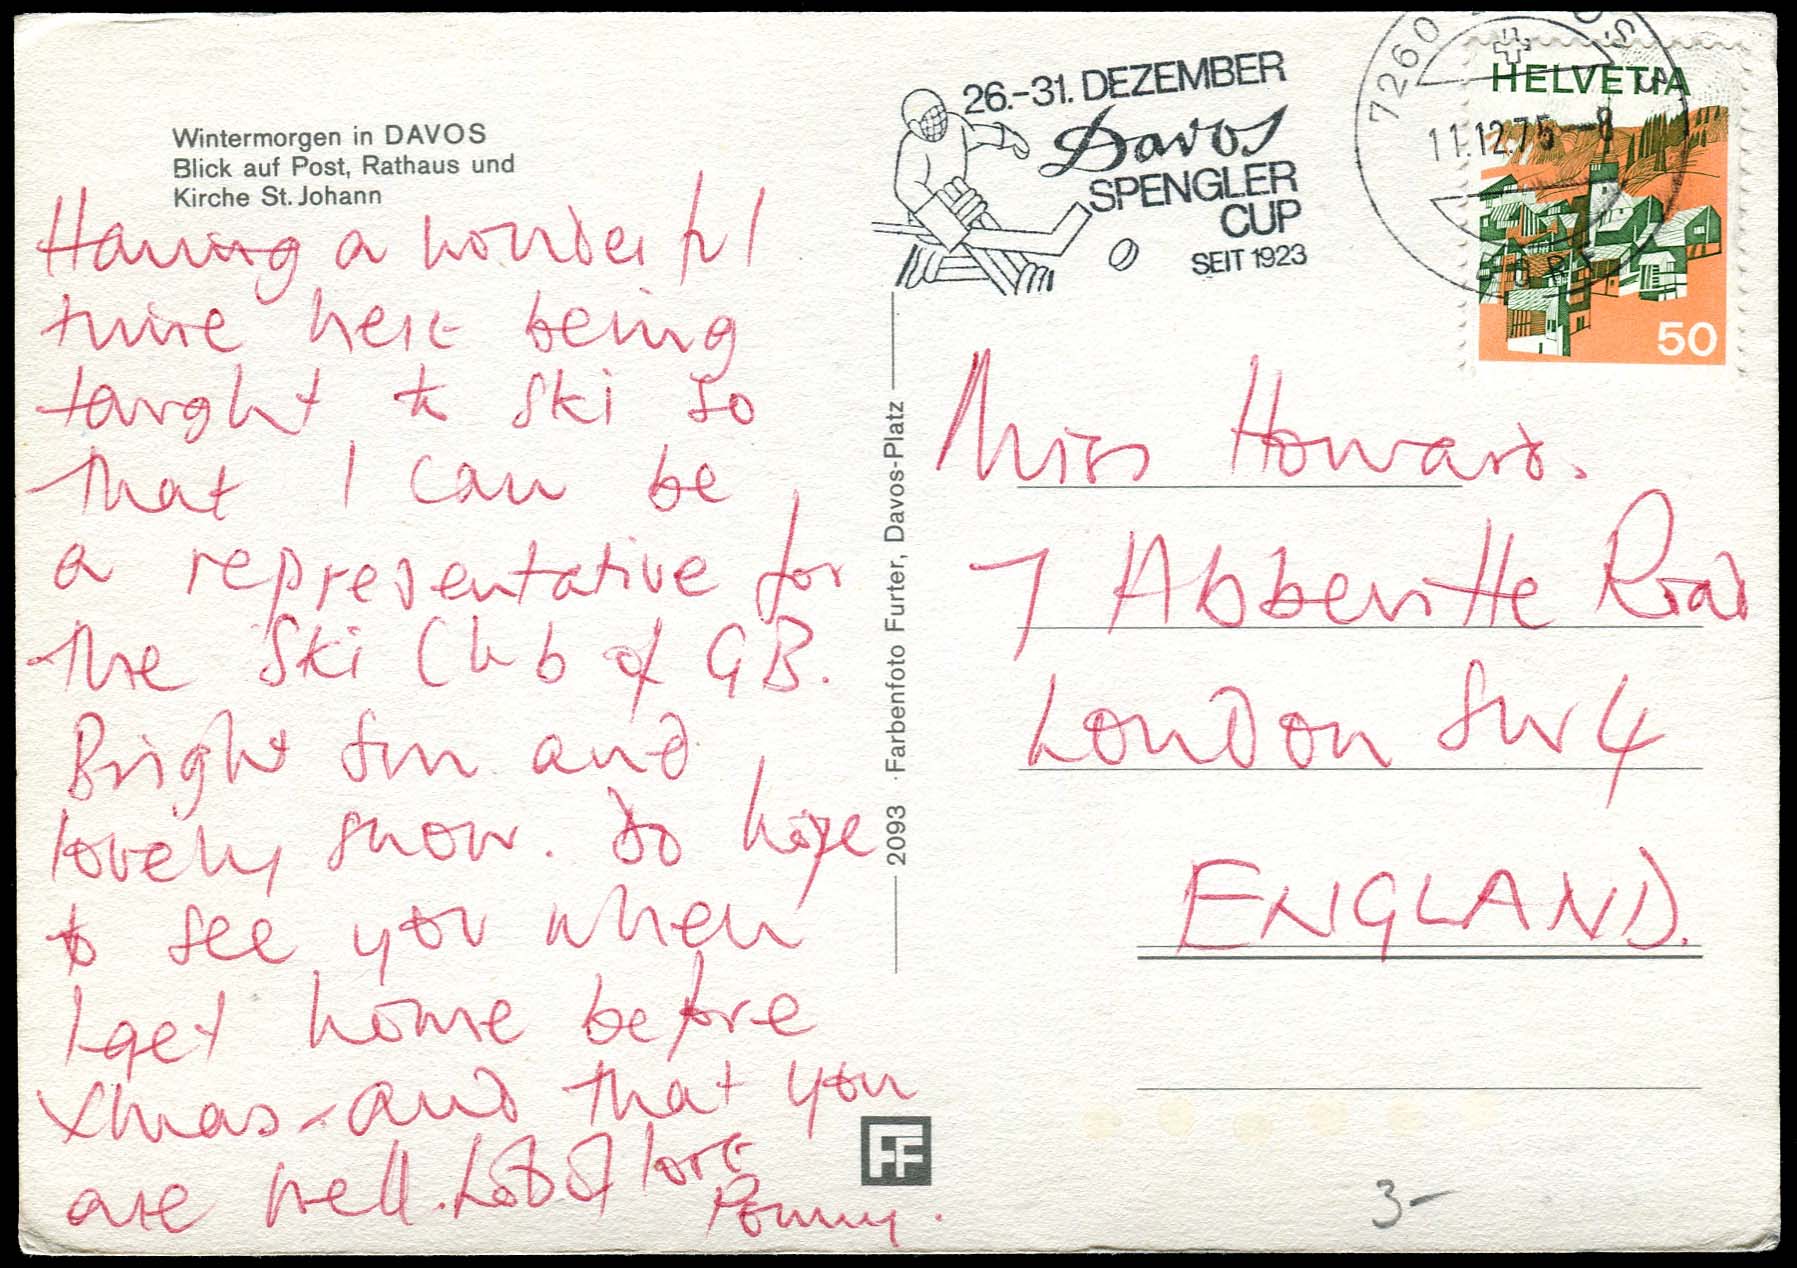 Wintermorgen in DAVOS
Blick auf Post, Rathaus und
Kirche St. Johann
Having a wonderful
time here being
taught to ski so
that I can be
a representative for
the Ski Club of GB.
Bright sun and
lovely snow. Do hope
to see you when
I get home before
Xmas - and that you
are well. Lots of love
Pommy.
2093 Farbenfoto Furter, Davos-Platz
FF
26.-31. DEZEMBER
Davos
SPENGLER
CUP
SEIT 1923
7260
11.12.75-8
HELVETIA
50
Miss Howard.
7 Abbeville Road
London SW4
ENGLAND.
3-